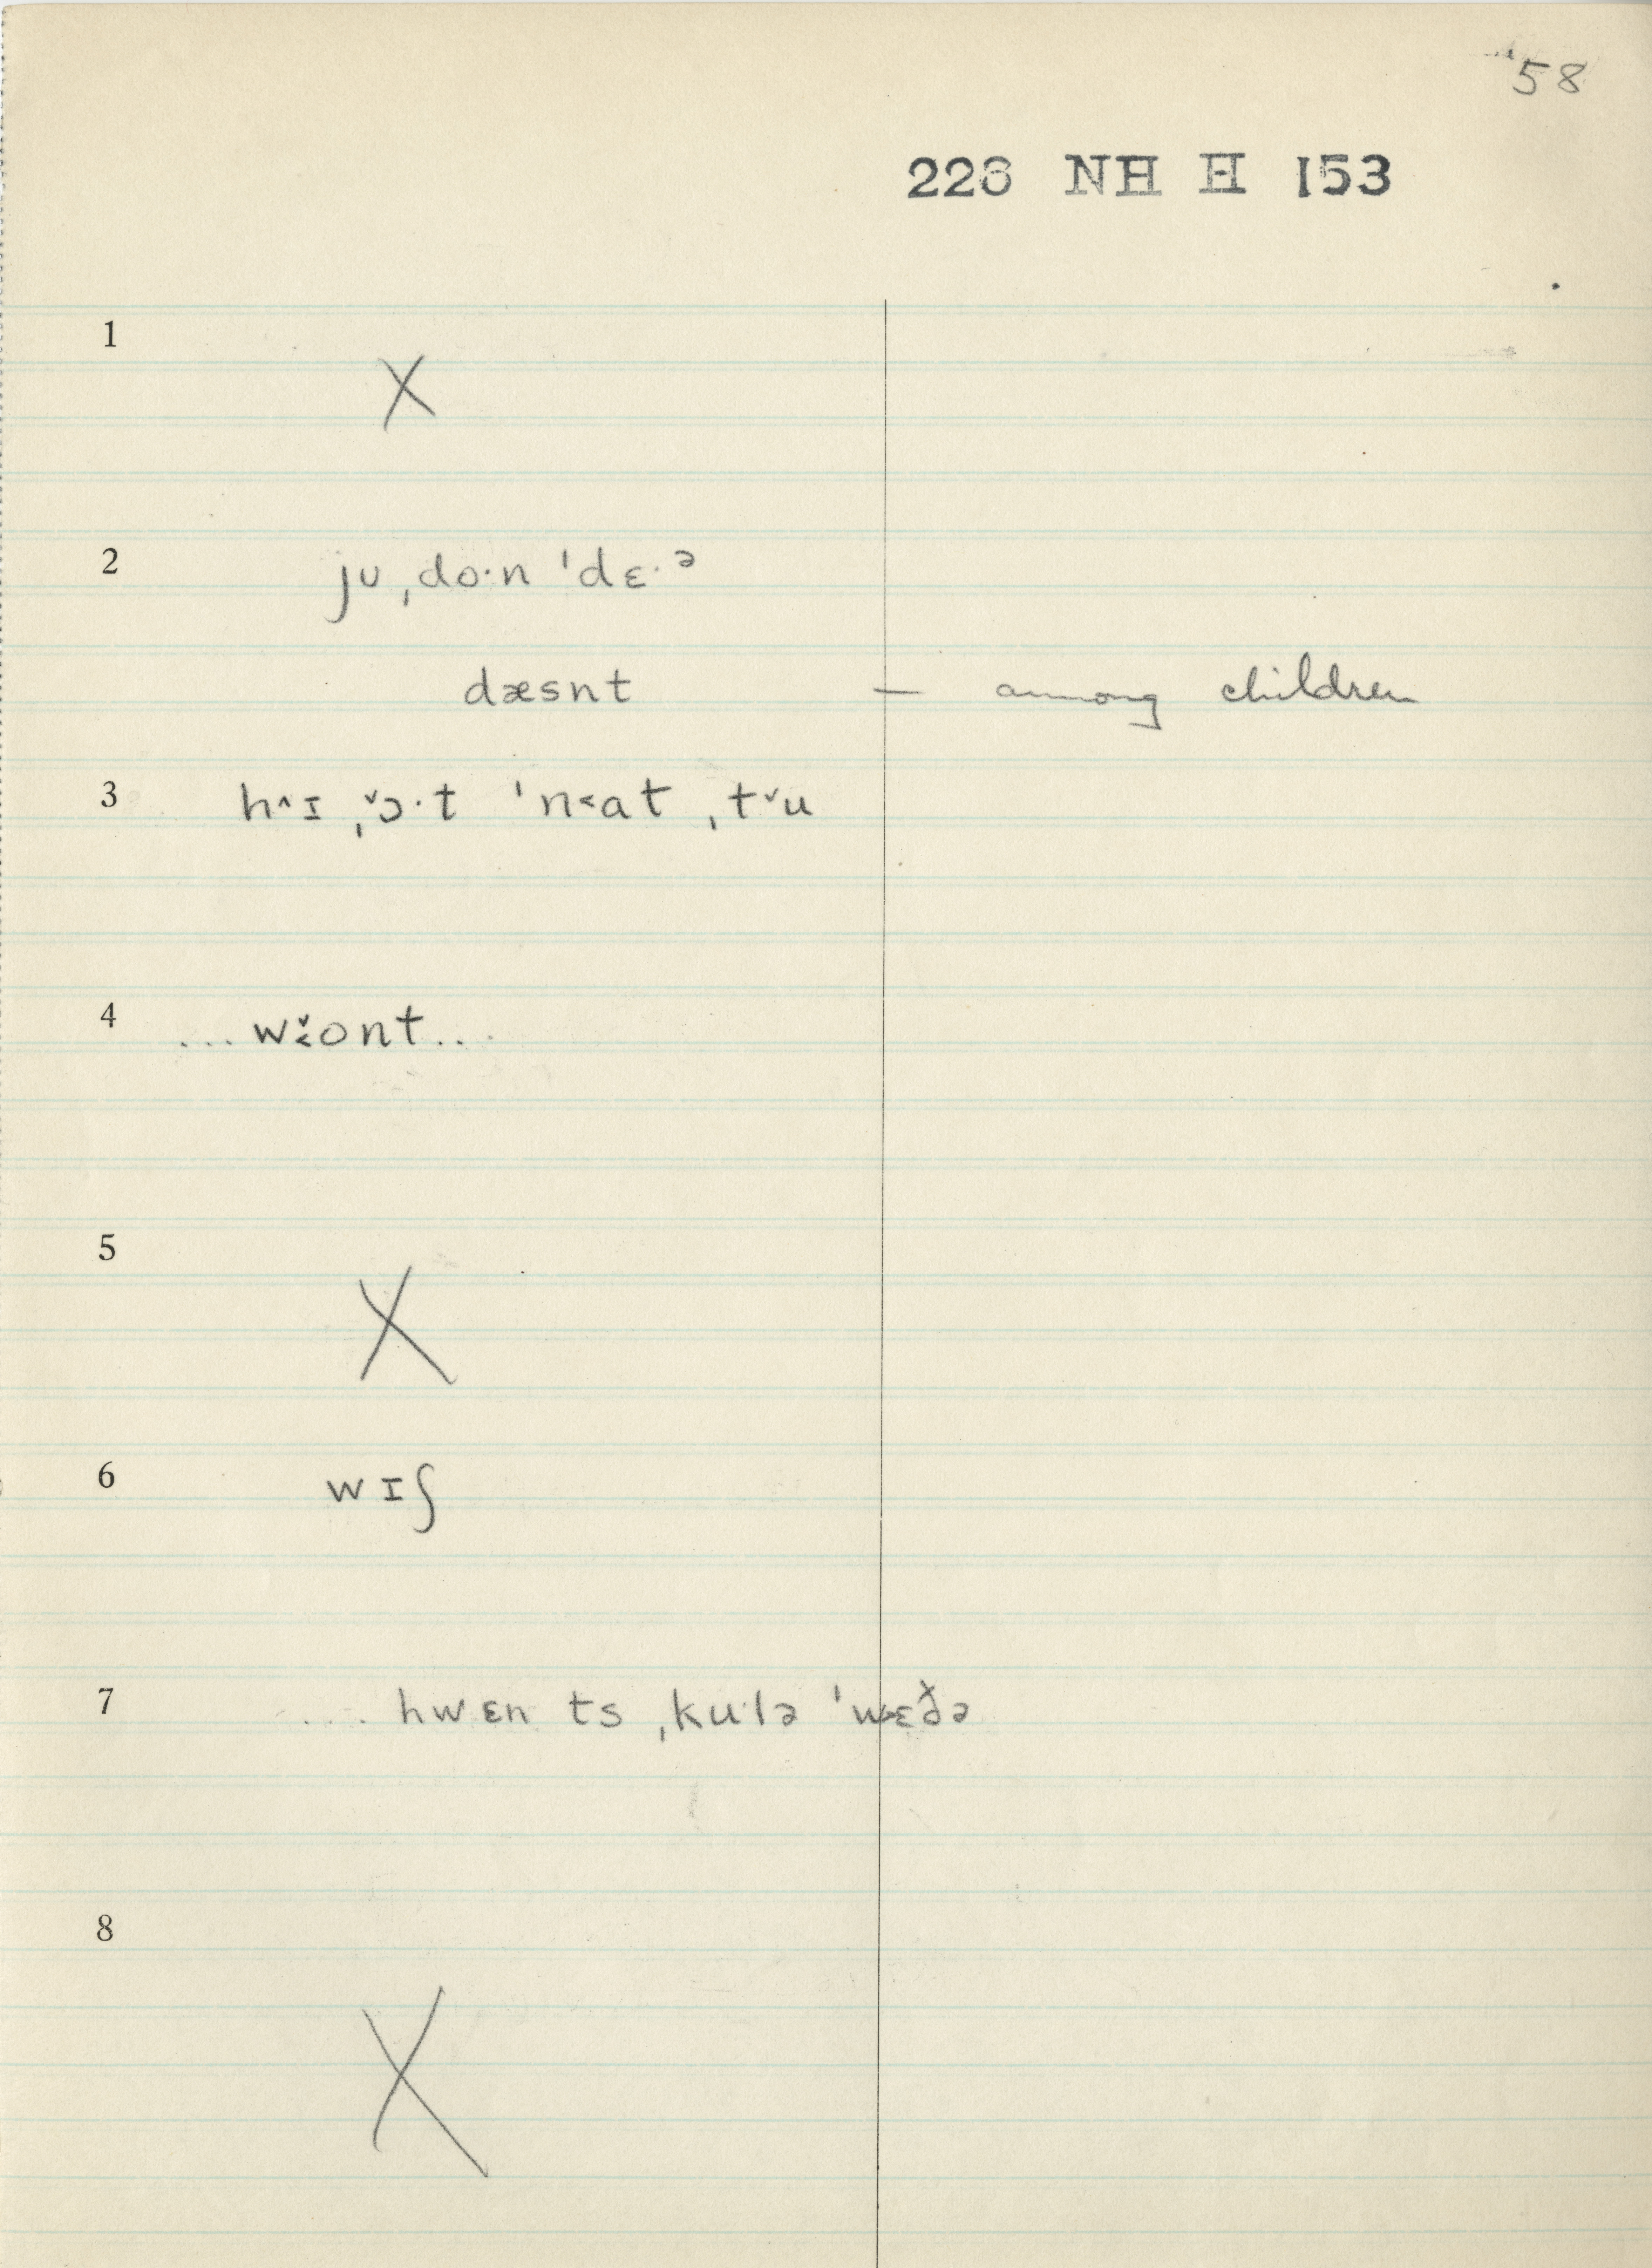 58
226 NH H 153
1
X
2
jʊ ˌdo·n ˈdɛ·ᵊ
dæsnt — among children
3
h^ɪ ˌˇɔ·t ˈn˂at ˌtˇu
4
... w˂̌ont...
5
X
6
wɪʃ
7
.... hwɛn ts ˌku·lə ˈw˃ɛðə
8
X